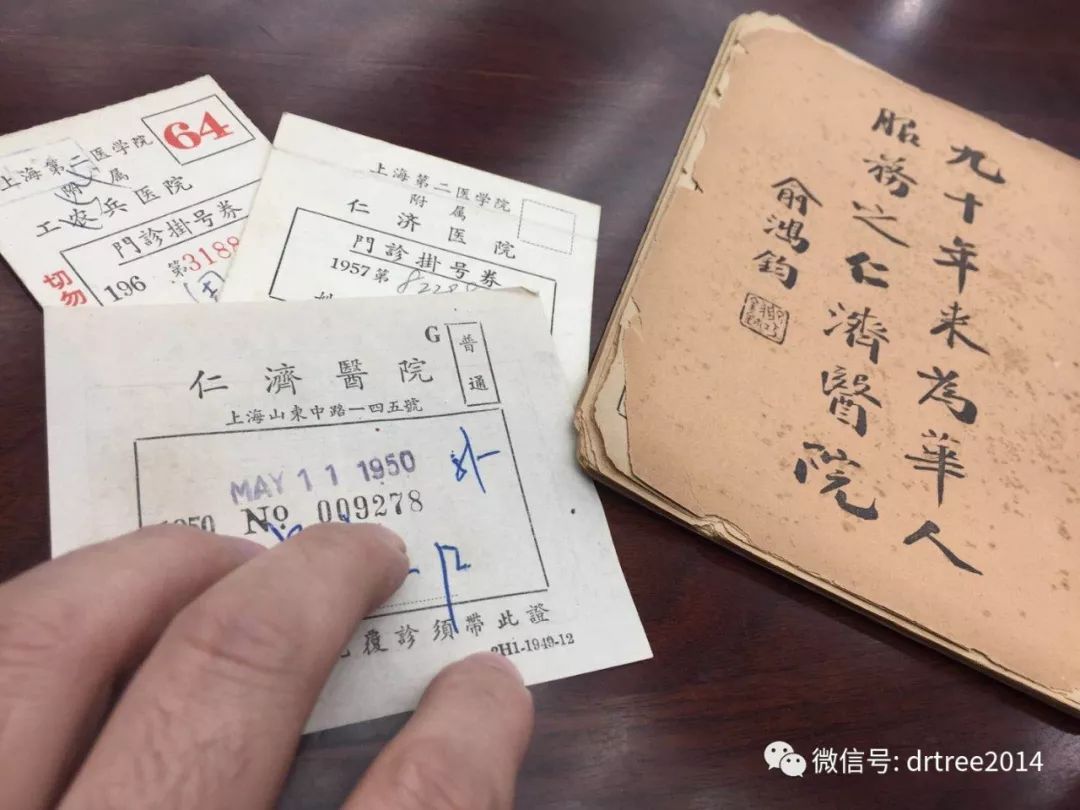 上海第二医学院
附属
工农兵医院
64
門診掛号券
196 第3188
切勿
上海第二医学院
附属
仁济医院
門診掛号券
1957 第
G
普通
仁濟醫院
上海山東中路一四五號
MAY 11 1950
1950 No 009278
覆診須帶此證
H1-1949-12
九十年来為華人
服務之仁濟醫院
俞鴻鈞
微信号: drtree2014